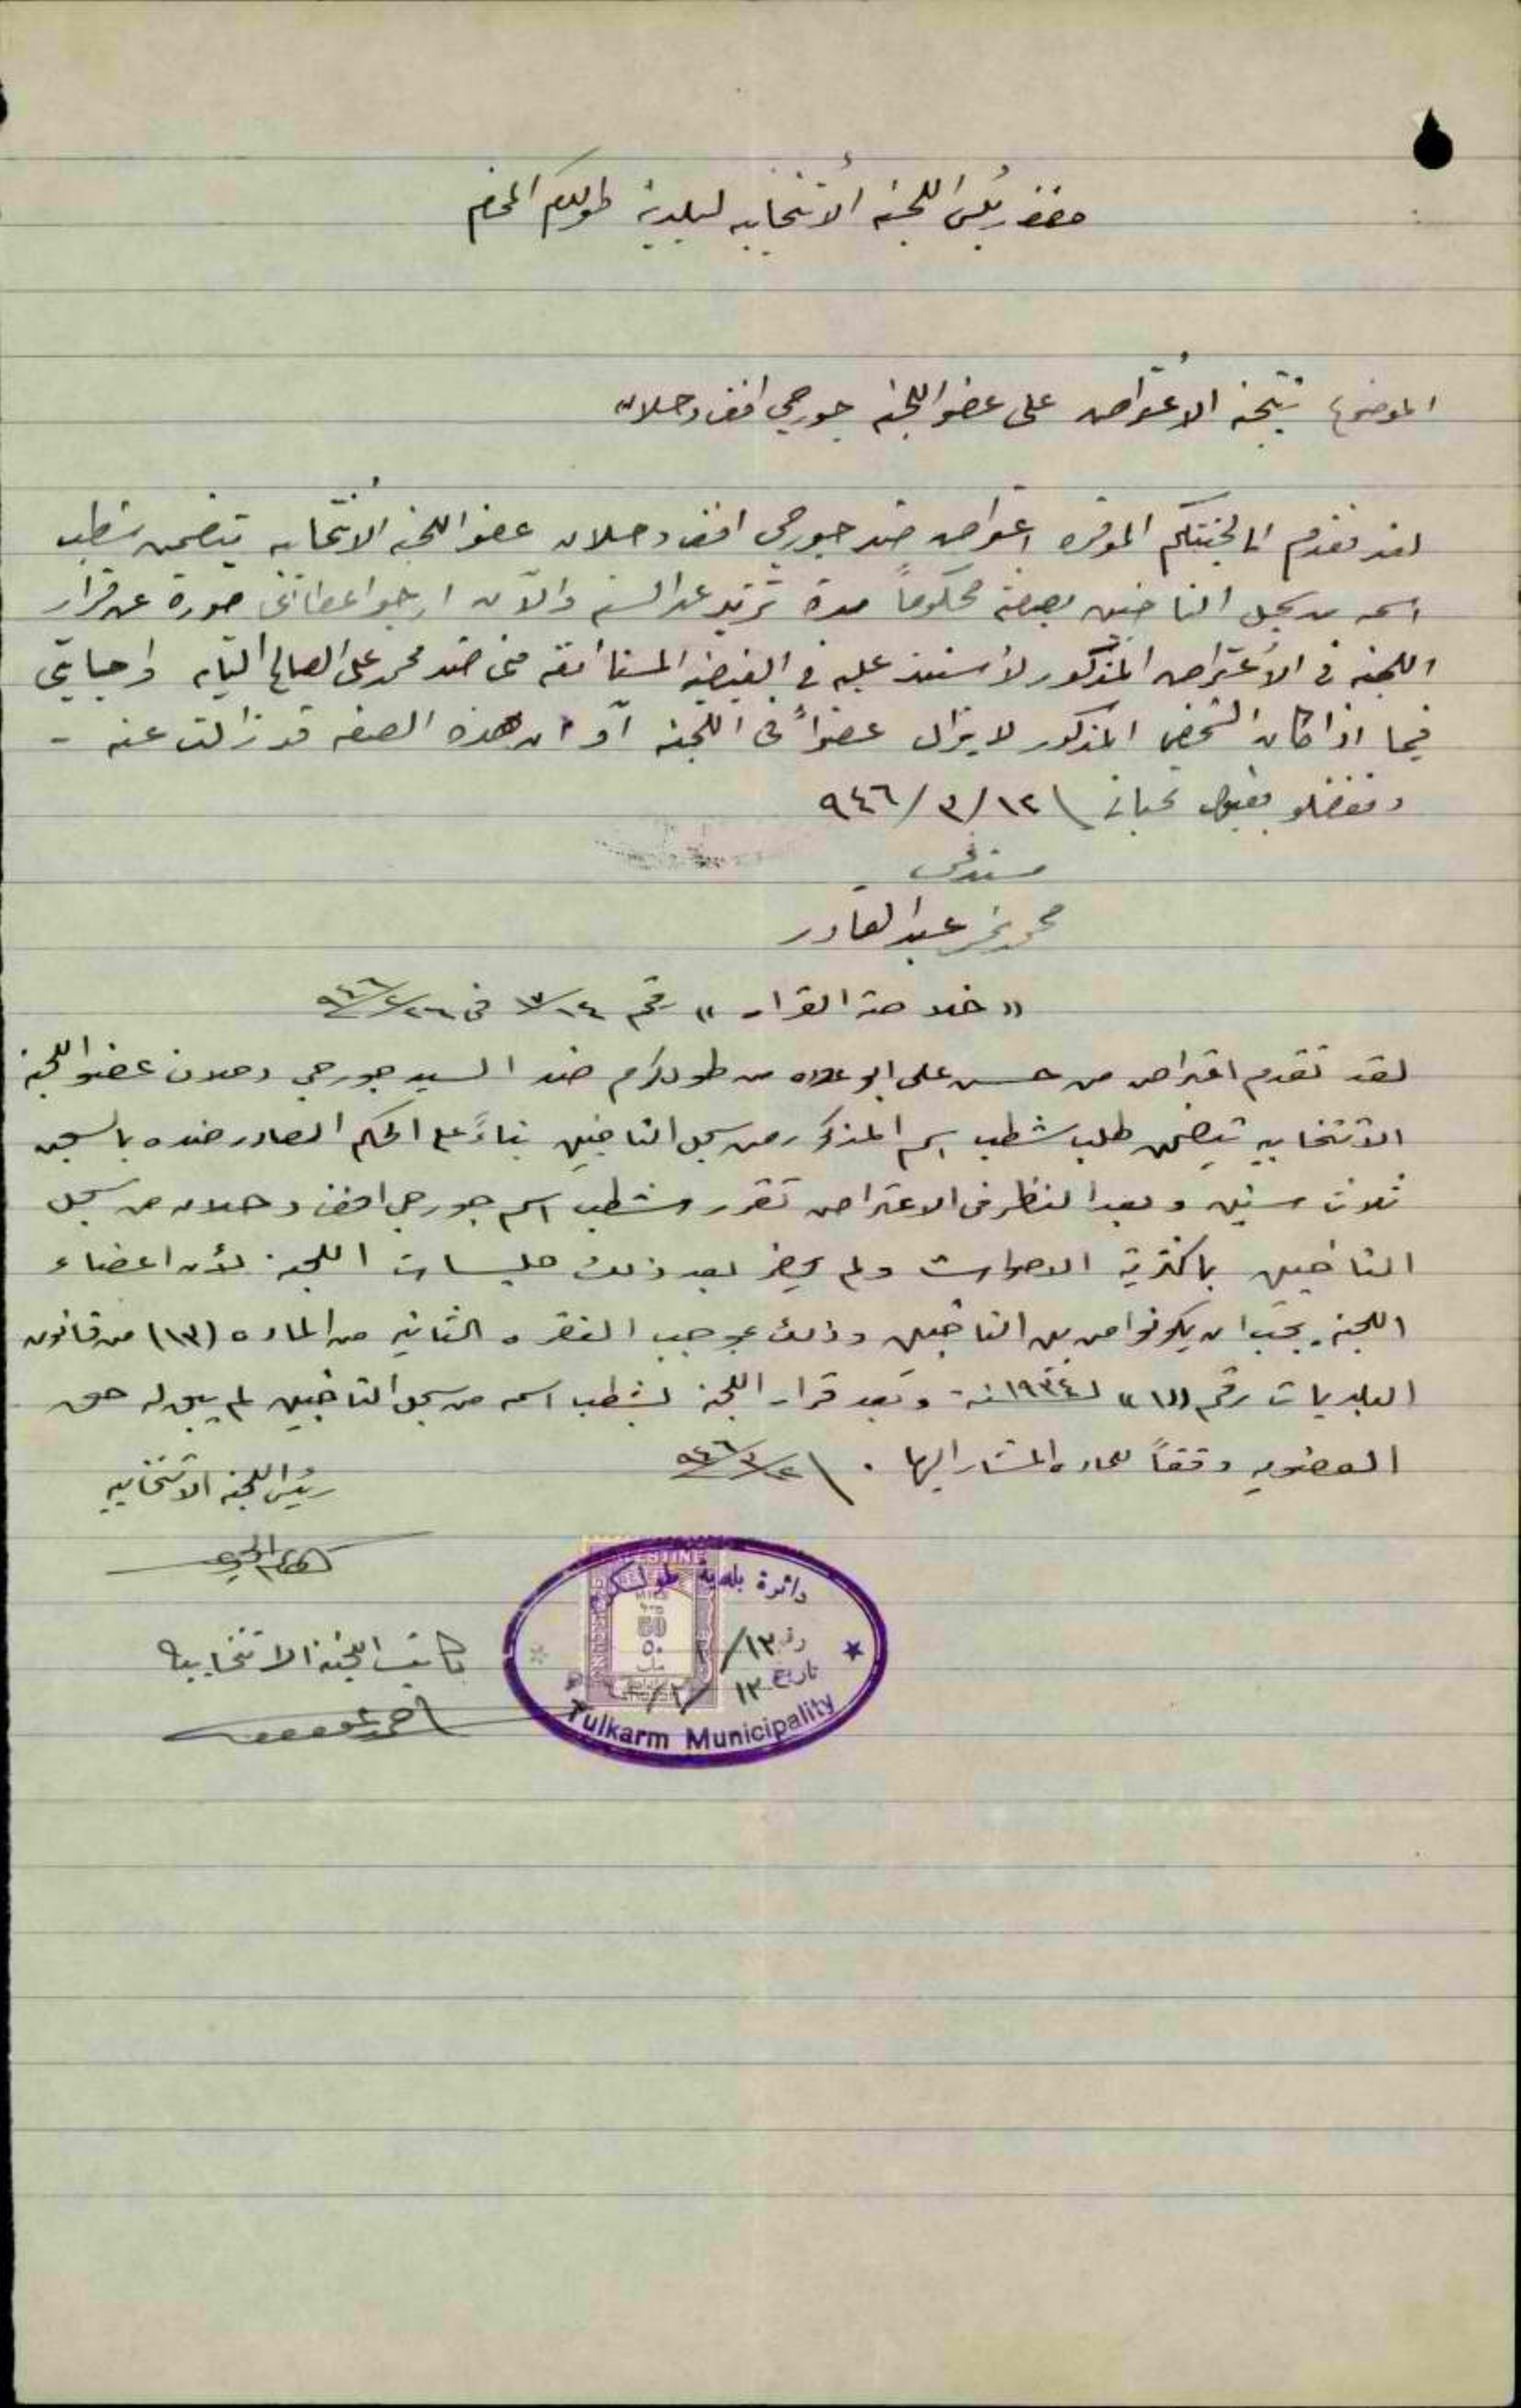 حضرة رئيس اللجنة الانتخابيه لبلدية طولكرم المحترم
الموضوع نتيجة الاعتراض على عضو اللجنه جورجي افندي دحلان
لقد تقدم الى لجنتكم الموقره اعتراض ضد جورجي افندي دحلان عضو اللجنه الانتخابيه يتضمن شطب
اسمه من سجل الناخبين بصفته محكوماً مدة تزيد عن السنه والآن ارجو اعطائي صورة عن قرار
اللجنه في الاعتراض المذكور لأستند عليه في القضيه المستأنفه مني ضد محمد علي الصالح التايه واجابتي
فيما اذا كان الشخص المذكور لا يزال عضواً في اللجنه أو ان هذه الصفه قد زالت عنه -
وتفضلو بقبول تحياتي ١٢/٣/٩٤٦
مستدعي
محمد نمر عبد القادر
«خلاصة القرار» رقم ١٤/١٣ في ٢٦/٢/٩٤٦
لقد تقدم اعتراض من حسن علي ابو علاده من طولكرم ضد السيد جورجي دحلان عضو اللجنة
الانتخابيه يتضمن طلب شطب اسم المذكور من سجل الناخبين بناءً على الحكم الصادر ضده بالسجن
ثلاث سنين وبعد النظر في الاعتراض تقرر شطب اسم جورجي افندي دحلان من سجل
الناخبين باكثرية الاصوات ولم يحضر بعد ذلك جلسات اللجنة لأن اعضاء
اللجنة يجب ان يكونوا من بين الناخبين وذلك بموجب الفقره الثانيه من الماده (١٣) من قانون
البلديات رقم «١» لسنة ١٩٣٤ وبعد قرار اللجنة لشطب اسمه من سجل الناخبين لم يبق له حق
العضويه وفقاً للماده المشار اليها . ١٢/٣/٩٤٦
رئيس اللجنة الانتخابيه
كاتب اللجنة الانتخابية
PALESTINE
MILS
50
٥٠
دائرة بلدية طولكرم
تاريخ ١٢/٣/
Tulkarm Municipality